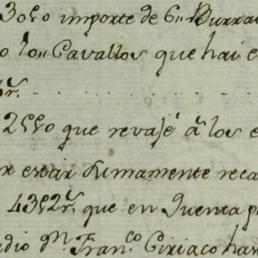 3o50 importe de 6,, Burra
o lo,, Cavallos que hai e
r.
2550 que revajé á los e
r estar sumamente reca
4352 r.s que en Quenta p
dio D.n Fran.co Ciriaco ha